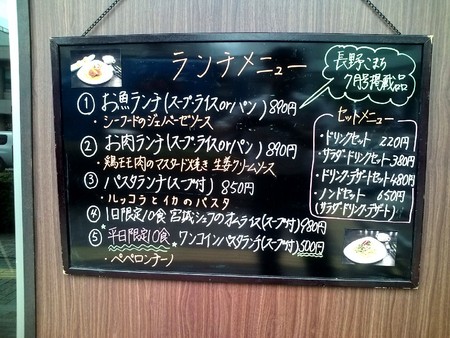 ランチメニュー
長野こまち
7月号掲載品
① お魚ランチ(スープ・ライスorパン) 890円
・シーフードのジェノベーゼソース
② お肉ランチ(スープ・ライスorパン) 890円
・鶏モモ肉のマスタード焼き 生姜クリームソース
③ パスタランチ(スープ付) 850円
・ルッコラとイカのパスタ
④ 1日限定10食 宮城シェフのオムライス(スープ付) 980円
⑤ 平日限定10食 ワンコインパスタランチ(スープ付) 500円
・ペペロンチーノ
セットメニュー
・ドリンクセット 220円
・サラダ・ドリンクセット 380円
・ドリンク・デザートセット 480円
・ノンドセット 650円
(サラダ・ドリンク・デザート)